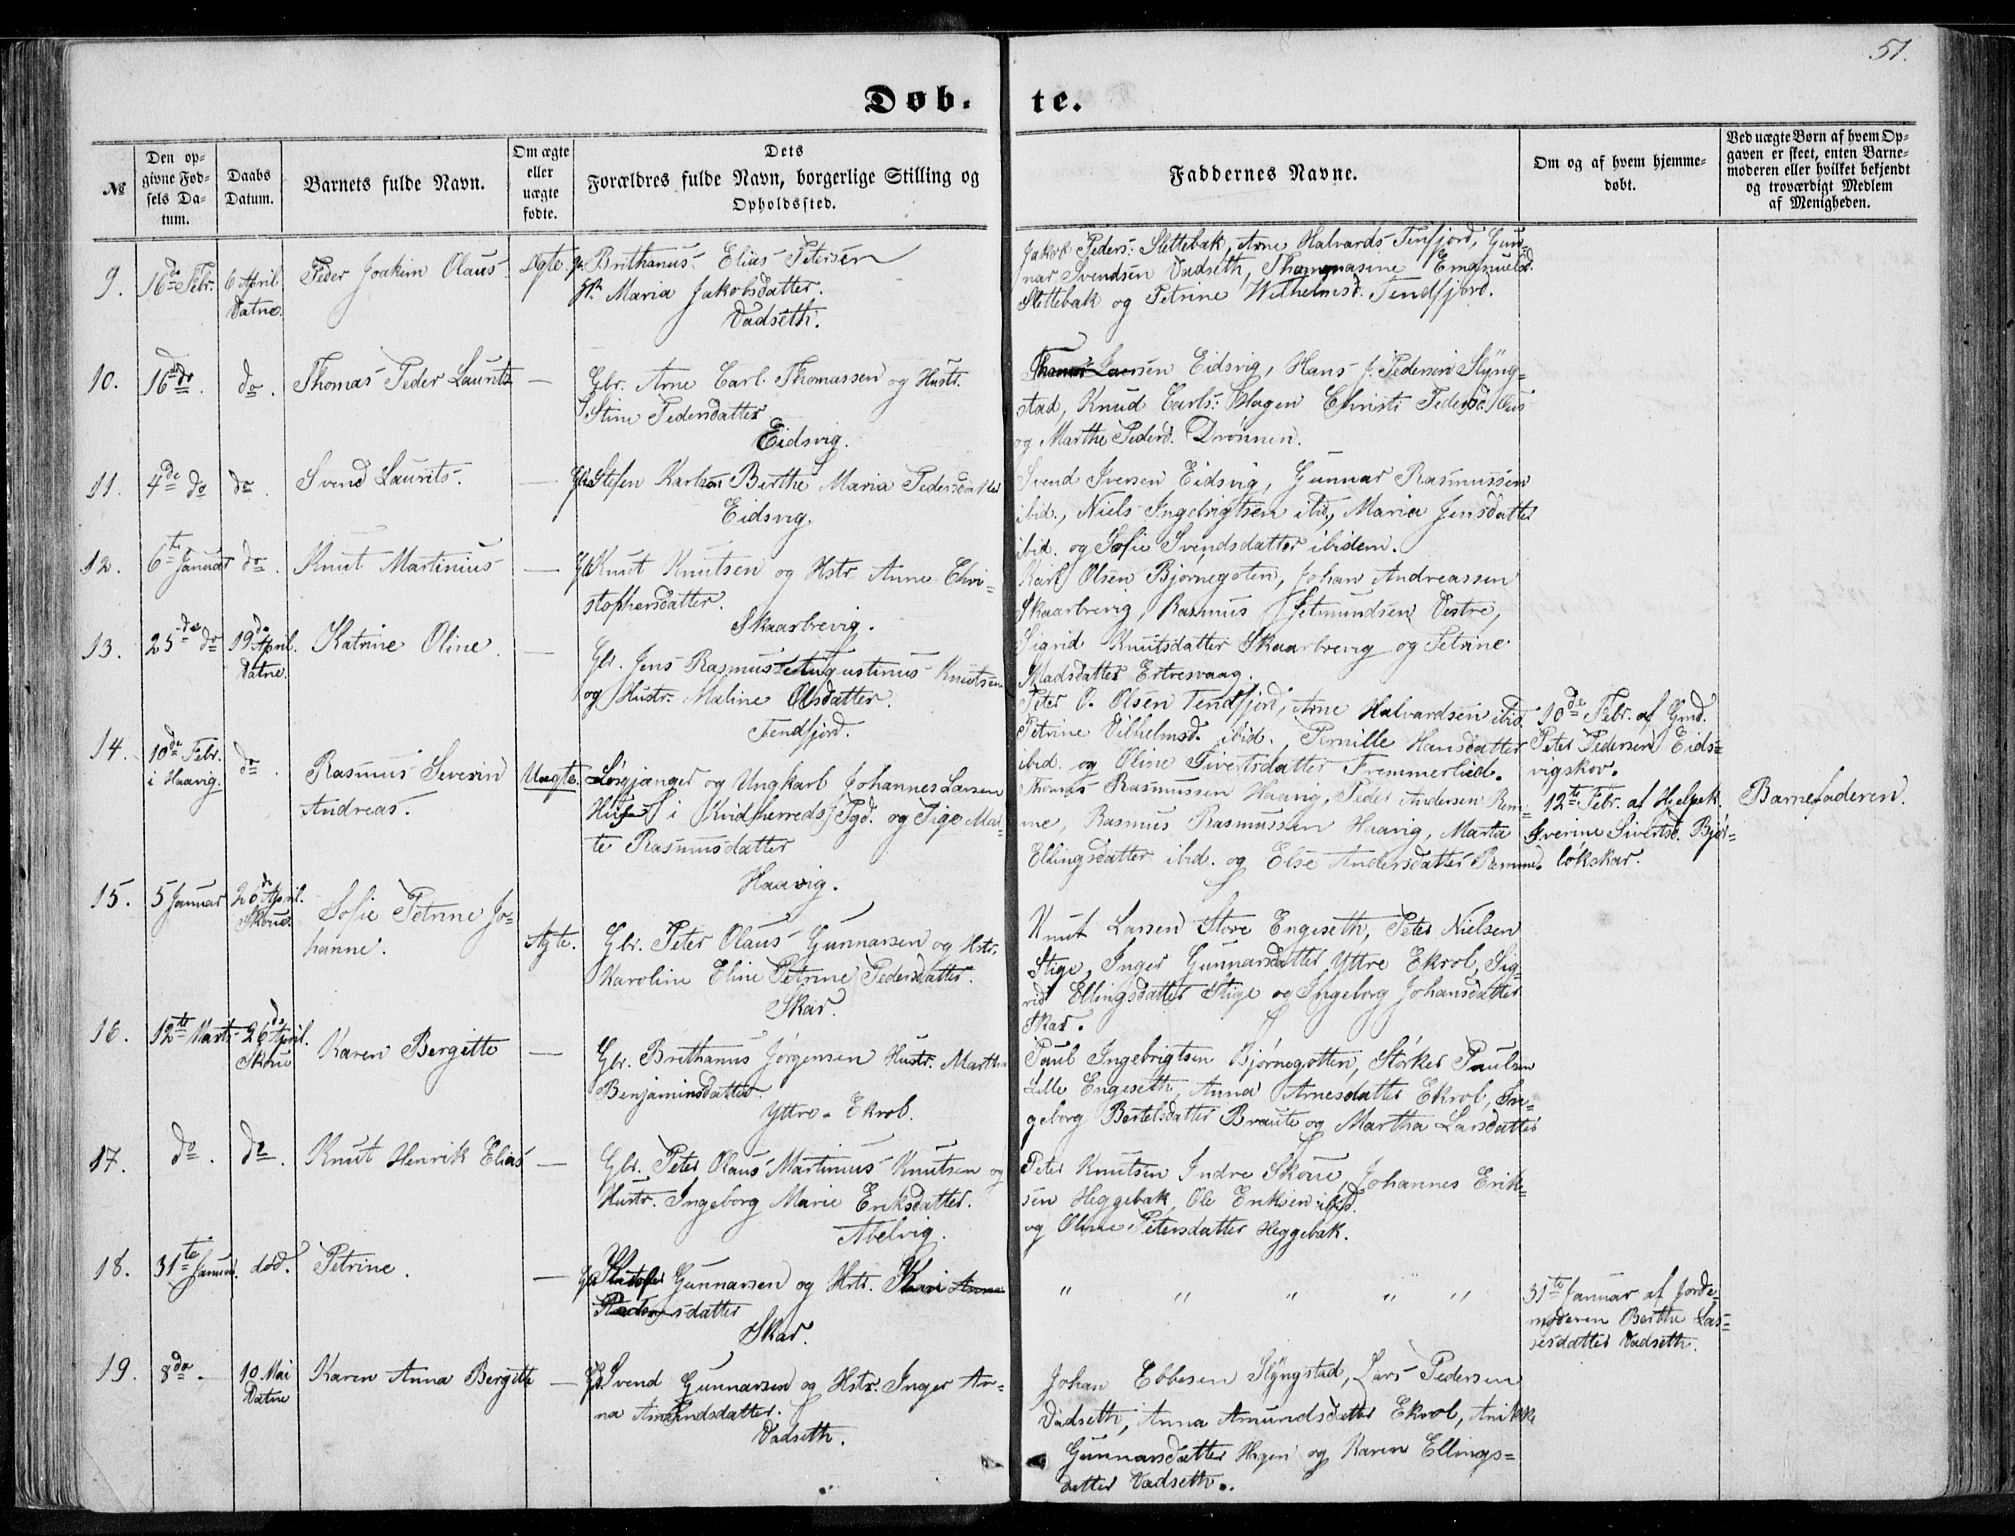 51.
Døb-
te.
№
Den op-
givne Fød-
sels Da-
tum.
Daabs
Datum.
Barnets fulde Navn.
Om ægte
eller
uægte
fødte.
Dets
Forældres fulde Navn, borgerlige Stilling og
Opholdssted.
Faddernes Navne.
Om og af hvem hjemme-
døbt.
Ved uægte Børn af hvem Op-
gaven er skeet, enten Barne-
moderen eller hvilket bekjendt
og troværdigt Medlem
af Menigheden.
9.
16de Febr.
6 April
Vatne.
Peder Joakim Olaus
Ægte
Brithanus Elias Petersen
Maria Jakobsdatter.
Vadseth.
Jakob Peders: Slettebak, Arne Halvards Tenfjord, Gun-
nar Svendsen Vadseth, Thommasine Emanuelsd.
Slettebak og Petrine Wilhelmsd. Tendfjord.
10.
16de do.
do.
Thomas Peder Laurits
—
Gbr. Arne Carl Thomassen og Hustr.
Stine Pedersdatter
Eidsvig.
Larsen Eidsvig, Hans J. Pedersen Slyng-
stad, Knud Carls: Hagen Christi Pedersd.
og Marthe Pedersd. Drønnen.
11.
4de do
do.
Svend Laurits.
—
Stefen Karlsen Berthe Maria Pedersdatter
Eidsvig.
Svend Iversen Eidsvig, Gunnar Rasmussen
ibid., Niels Ingebrigtsen ibd., Maria Jensdatter
ibid. og Sofie Svendsdatter ibidem.
12.
6te Januar
do.
Knut Martinius
—
Knut Knutsen og Hstr. Anne Chri-
stophersdatter.
Skaarbrevig.
Karl Olsen Bjørnegoten, Johan Andreassen
Skaarbrevig, Rasmus Setmundsen Vestre,
Sigrid Knutsdatter Skaarbrevig og Petrine
Madsdatter Ertresvaag.
13.
25de do
19de April.
Vatne.
Katrine Oline.
—
Gbr. Jens Rasmus Augustinus Knutsen
og Hustr. Maline Olsdatter.
Tendfjord.
Peter O. Olsen Tendfjord, Arne Halvardsen ibid
Petrine Vilhelmsd. ibid., Pernille Hansdatter
ibid. og Oline Sivertsdatter Fremmerlied.
10de Febr. af Gmd.
Peter Pedersen Eids-
vigskov.
14.
10de Febr.
i Haavig.
do.
Rasmus Severin
Andreas.
Uægte.
Løsgjænger og Ungkarl Johannes Larsen
i Kvidherreds Pgd. og Pige Ma-
te Rasmusdatter
Haavig.
Thomas Rasmussen Haavig, Peder Andersen Rem-
me, Rasmus Rasmussen Haavig, Marta
Ellingsdatter ibid. og Else Andersdatter Remme.
12te Febr. af Hjelpek.
Iverine Sivertsd. Bjør-
løkskar.
Barnefaderen.
15.
5 Januar
20de April.
Skoue.
Sofie Petrine Jo-
hanne.
Ægte.
Gbr. Peter Olaus Gunnarsen og Hstr.
Karoline Eline Petrine Pedersdatter.
Skar.
Knut Larsen Store Engeseth, Peter Nielsen
Stige, Inger Gunnarsdatter Yttre Ekrol, Sig-
rid Ellingsdatter Stige og Ingeborg Johansdatter
Skar.
16.
12te Marts
26de April.
Skoue
Karen Bergitte
—
Gbr. Brithanus Jørgensen Hustr. Marthe
Benjaminsdatter.
Yttre-Ekrol.
Paul Ingebrigtsen Bjørnegotten, Størker Paulsen
Lille Engeseth, Anna Arnesdatter Ekrol, In-
geborg Bertelsdatter Braute og Martha Larsdatter
17.
do.
do.
Knut Henrik Elias
—
Gbr. Peter Olaus Martinius Knutsen og
Hustr. Ingeborg Marie Eriksdatter.
Abelvig.
Peter Knutsen Indre Skoue, Johannes Erik-
sen Heggebak, Ole Eriksen ibid.
og Oline Petersdatter Heggebak.
18.
31te Januar.
død.
Petrine.
—
Gunnarsen og Hstr. Anna
datter
Skar.
" " " " "
31te Januar af Jorde-
moderen Berthe Las-
sesdatter Vadseth.
19.
8de do.
10 Mai
Vatne
Karen Anna Bergitte
—
Svend Gunnarsen og Hstr. Inger An-
na Amundsdatter.
Vadseth.
Johan Ebbesen Slyngstad, Lars Pedersen
Vadseth, Anna Amundsdatter Ekrol, Anikke
Gunnarsdatter Hagen og Karen Ellings-
datter Vadseth.